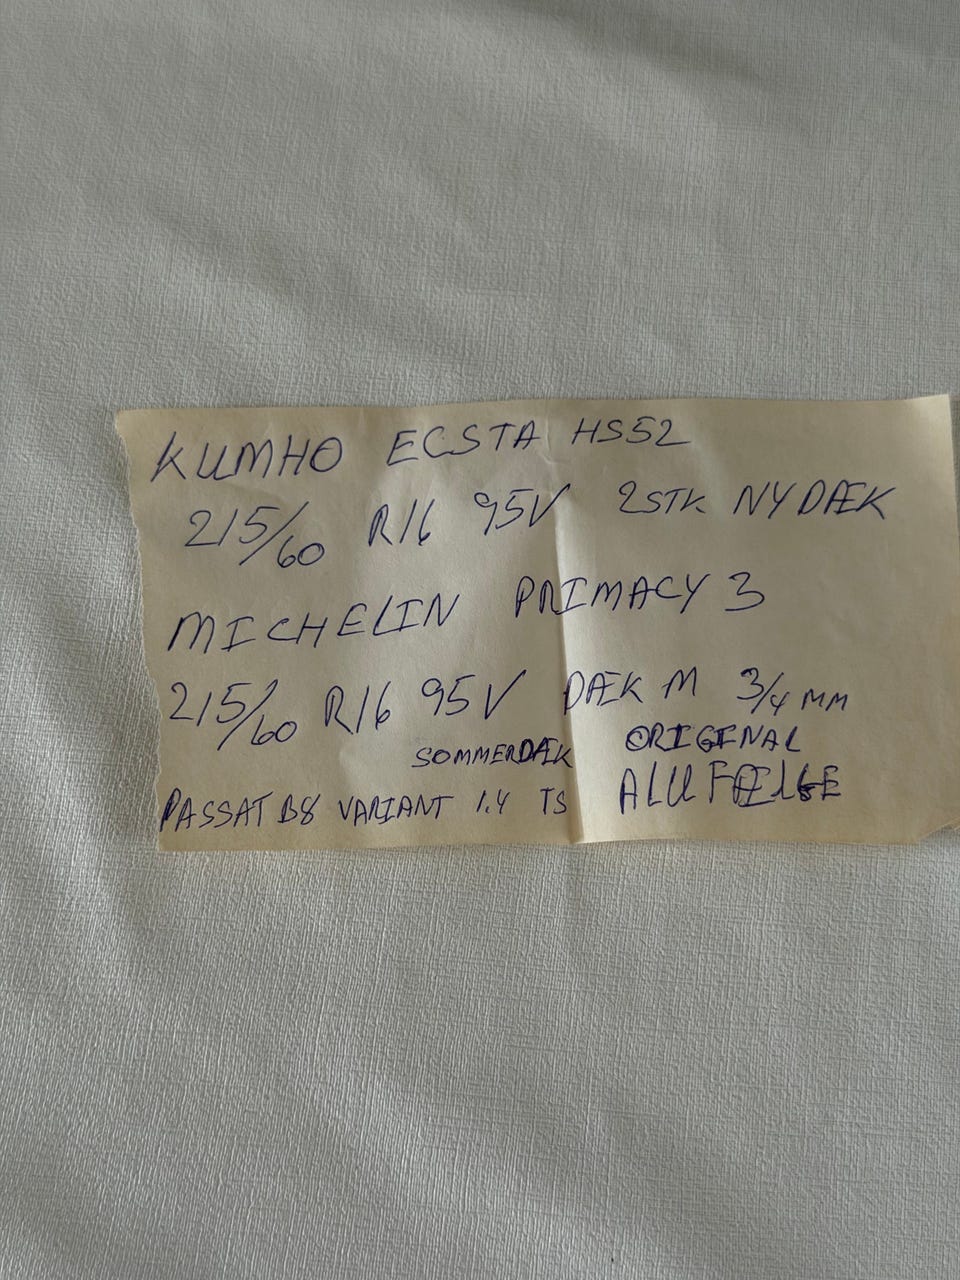 KUMHO ECSTA HS52
215/60 R16 95V 2STK NY DÆK
MICHELIN PRIMACY 3
215/60 R16 95V DÆK M 3/4 MM
SOMMERDÆK ORIGINAL
PASSAT B8 VARIANT 1.4 TS ALU FÆLGE